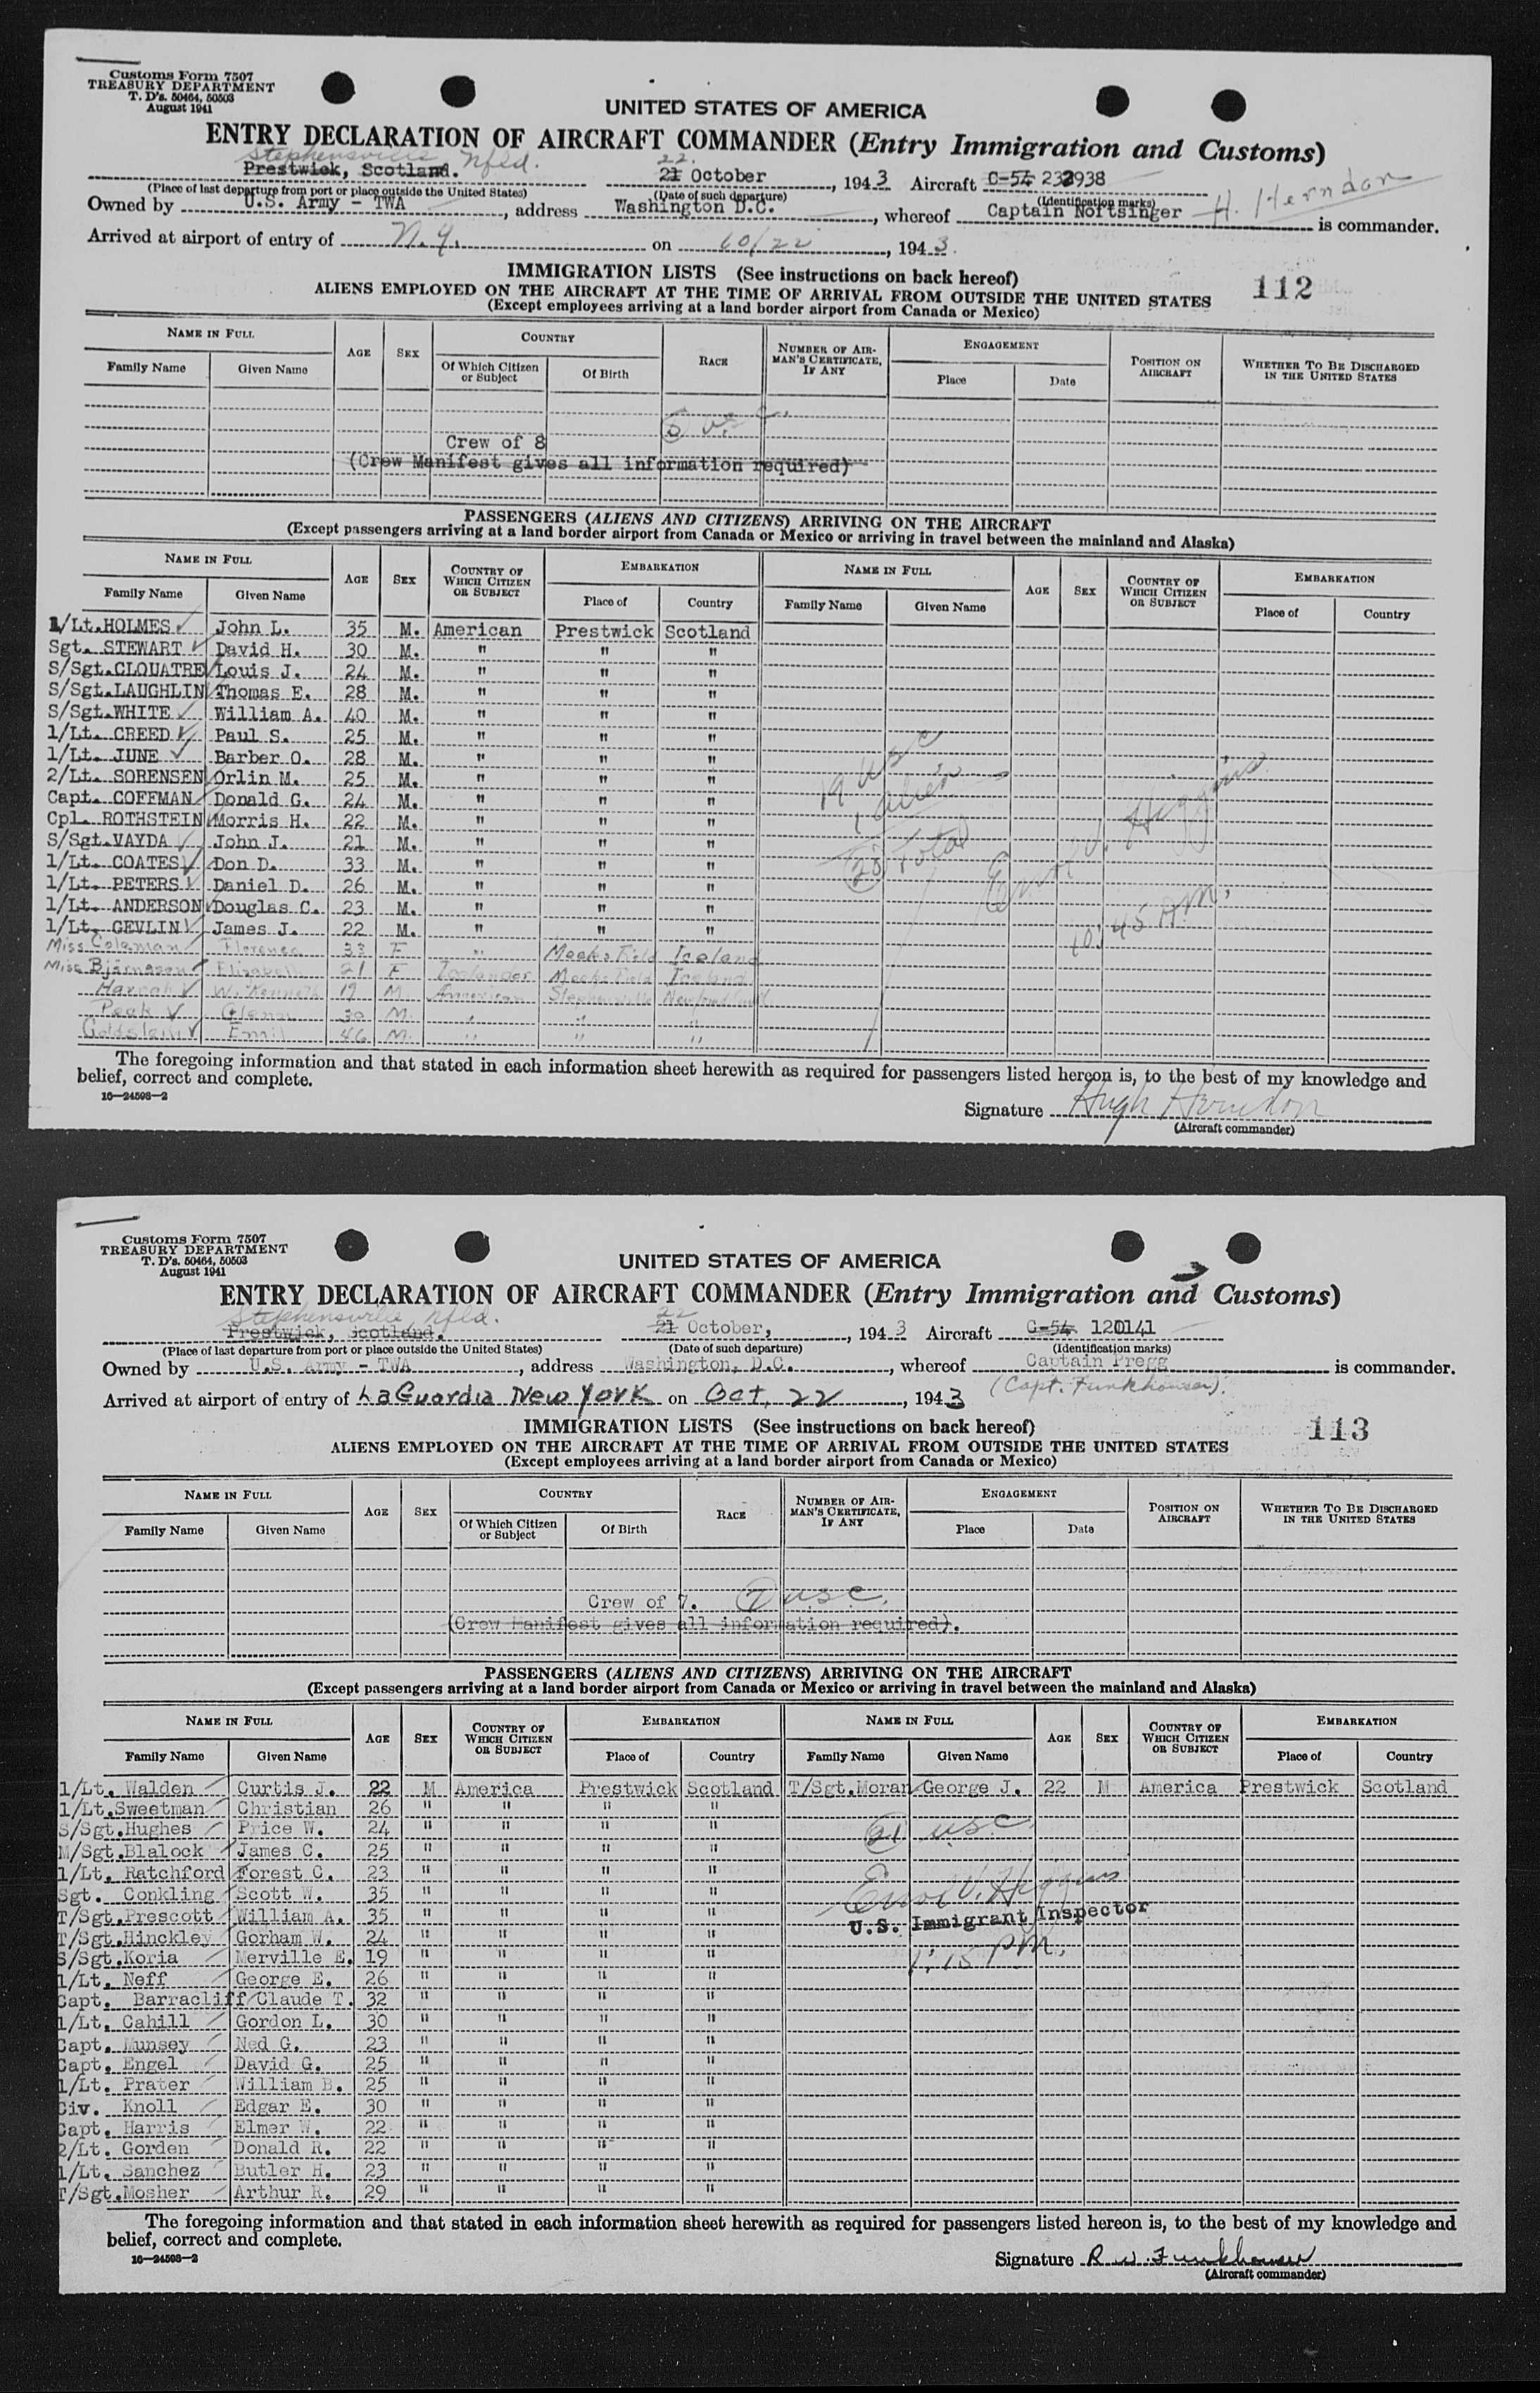 Customs Form 7507
TREASURY DEPARTMENT
T. D's. 50464, 50503
August 1941
UNITED STATES OF AMERICA
ENTRY DECLARATION OF AIRCRAFT COMMANDER (Entry Immigration and Customs)
Stephensville Nfld.
22
Prestwick, Scotland. 21 October, 1943 Aircraft C-54 232938
(Place of last departure from port or place outside the United States) (Date of such departure) (Identification marks)
Owned by U.S. Army - TWA, address Washington D.C., whereof Captain Noftsinger H. Herndon is commander.
Arrived at airport of entry of N.Y. on 10/22, 1943.
IMMIGRATION LISTS (See instructions on back hereof) 112
ALIENS EMPLOYED ON THE AIRCRAFT AT THE TIME OF ARRIVAL FROM OUTSIDE THE UNITED STATES
(Except employees arriving at a land border airport from Canada or Mexico)
NAME IN FULL AGE SEX COUNTRY RACE NUMBER OF AIRMAN'S CERTIFICATE, IF ANY ENGAGEMENT POSITION ON AIRCRAFT WHETHER TO BE DISCHARGED IN THE UNITED STATES
Family Name Given Name Of Which Citizen or Subject Of Birth Place Date
Crew of 8
(Crew Manifest gives all information required)
PASSENGERS (ALIENS AND CITIZENS) ARRIVING ON THE AIRCRAFT
(Except passengers arriving at a land border airport from Canada or Mexico or arriving in travel between the mainland and Alaska)
NAME IN FULL AGE SEX COUNTRY OF WHICH CITIZEN OR SUBJECT EMBARKATION NAME IN FULL AGE SEX COUNTRY OF WHICH CITIZEN OR SUBJECT EMBARKATION
Family Name Given Name Place of Country Family Name Given Name Place of Country
1/Lt. HOLMES John L. 35 M. American Prestwick Scotland
Sgt. STEWART David H. 30 M. " " "
S/Sgt. CLOUATRE Louis J. 24 M. " " "
S/Sgt. LAUGHLIN Thomas E. 28 M. " " "
S/Sgt. WHITE William A. 40 M. " " "
1/Lt. CREED Paul S. 25 M. " " "
1/Lt. JUNE Barber O. 28 M. " " "
2/Lt. SORENSEN Orlin M. 25 M. " " "
Capt. COFFMAN Donald G. 24 M. " " "
Cpl. ROTHSTEIN Morris H. 22 M. " " "
S/Sgt. VAYDA John J. 21 M. " " "
1/Lt. COATES Don D. 33 M. " " "
1/Lt. PETERS Daniel D. 26 M. " " "
1/Lt. ANDERSON Douglas C. 23 M. " " "
1/Lt. GEVLIN James J. 22 M. " " "
Miss Coleman Florence 33 F " Meeks Field Iceland
Miss Bjarnason Elizabeth 21 F Icelander Meeks Field Iceland
Harrah W. Kenneth 19 M. American Stephensville Newfoundland
Peek Glenn 30 M. " " "
Goldstein Emil 46 M. " " "
19 USC
1 alien
20 Total
Errol V. Higgins
10:45 A.M.
The foregoing information and that stated in each information sheet herewith as required for passengers listed hereon is, to the best of my knowledge and
belief, correct and complete.
16—24598-2
Signature Hugh Herndon
(Aircraft commander)
Customs Form 7507
TREASURY DEPARTMENT
T. D's. 50464, 50503
August 1941
UNITED STATES OF AMERICA
ENTRY DECLARATION OF AIRCRAFT COMMANDER (Entry Immigration and Customs)
Stephensville, Nfld.
22
Prestwick, Scotland. 21 October, 1943 Aircraft C-54 120141
(Place of last departure from port or place outside the United States) (Date of such departure) (Identification marks)
Owned by U.S. Army - TWA, address Washington, D.C., whereof Captain Pregg is commander.
(Capt. Funkhouser).
Arrived at airport of entry of LaGuardia New York on Oct. 22, 1943
IMMIGRATION LISTS (See instructions on back hereof) 113
ALIENS EMPLOYED ON THE AIRCRAFT AT THE TIME OF ARRIVAL FROM OUTSIDE THE UNITED STATES
(Except employees arriving at a land border airport from Canada or Mexico)
NAME IN FULL AGE SEX COUNTRY RACE NUMBER OF AIRMAN'S CERTIFICATE, IF ANY ENGAGEMENT POSITION ON AIRCRAFT WHETHER TO BE DISCHARGED IN THE UNITED STATES
Family Name Given Name Of Which Citizen or Subject Of Birth Place Date
Crew of 7. 7 USC.
(Crew Manifest gives all information required).
PASSENGERS (ALIENS AND CITIZENS) ARRIVING ON THE AIRCRAFT
(Except passengers arriving at a land border airport from Canada or Mexico or arriving in travel between the mainland and Alaska)
NAME IN FULL AGE SEX COUNTRY OF WHICH CITIZEN OR SUBJECT EMBARKATION NAME IN FULL AGE SEX COUNTRY OF WHICH CITIZEN OR SUBJECT EMBARKATION
Family Name Given Name Place of Country Family Name Given Name Place of Country
1/Lt. Walden Curtis J. 22 M America Prestwick Scotland T/Sgt. Moran George J. 22 M America Prestwick Scotland
1/Lt. Sweetman Christian 26 " " " "
S/Sgt. Hughes Price W. 24 " " " "
M/Sgt. Blalock James C. 25 " " " "
1/Lt. Ratchford Forest C. 23 " " " "
Sgt. Conkling Scott W. 35 " " " "
T/Sgt. Prescott William A. 35 " " " "
T/Sgt. Hinckley Gorham W. 24 " " " "
S/Sgt. Koria Merville E. 19 " " " "
1/Lt. Neff George E. 26 " " " "
Capt. Barracliff Claude T. 32 " " " "
1/Lt. Cahill Gordon L. 30 " " " "
Capt. Munsey Ned G. 23 " " " "
Capt. Engel David G. 25 " " " "
1/Lt. Prater William B. 25 " " " "
Civ. Knoll Edgar E. 30 " " " "
Capt. Harris Elmer W. 22 " " " "
2/Lt. Gorden Donald R. 22 " " " "
1/Lt. Sanchez Butler H. 23 " " " "
T/Sgt. Mosher Arthur R. 29 " " " "
21 USC
Errol V. Higgins
U.S. Immigrant Inspector
1:15 PM.
The foregoing information and that stated in each information sheet herewith as required for passengers listed hereon is, to the best of my knowledge and
belief, correct and complete.
16—24598-2
Signature R W Funkhouser
(Aircraft commander)